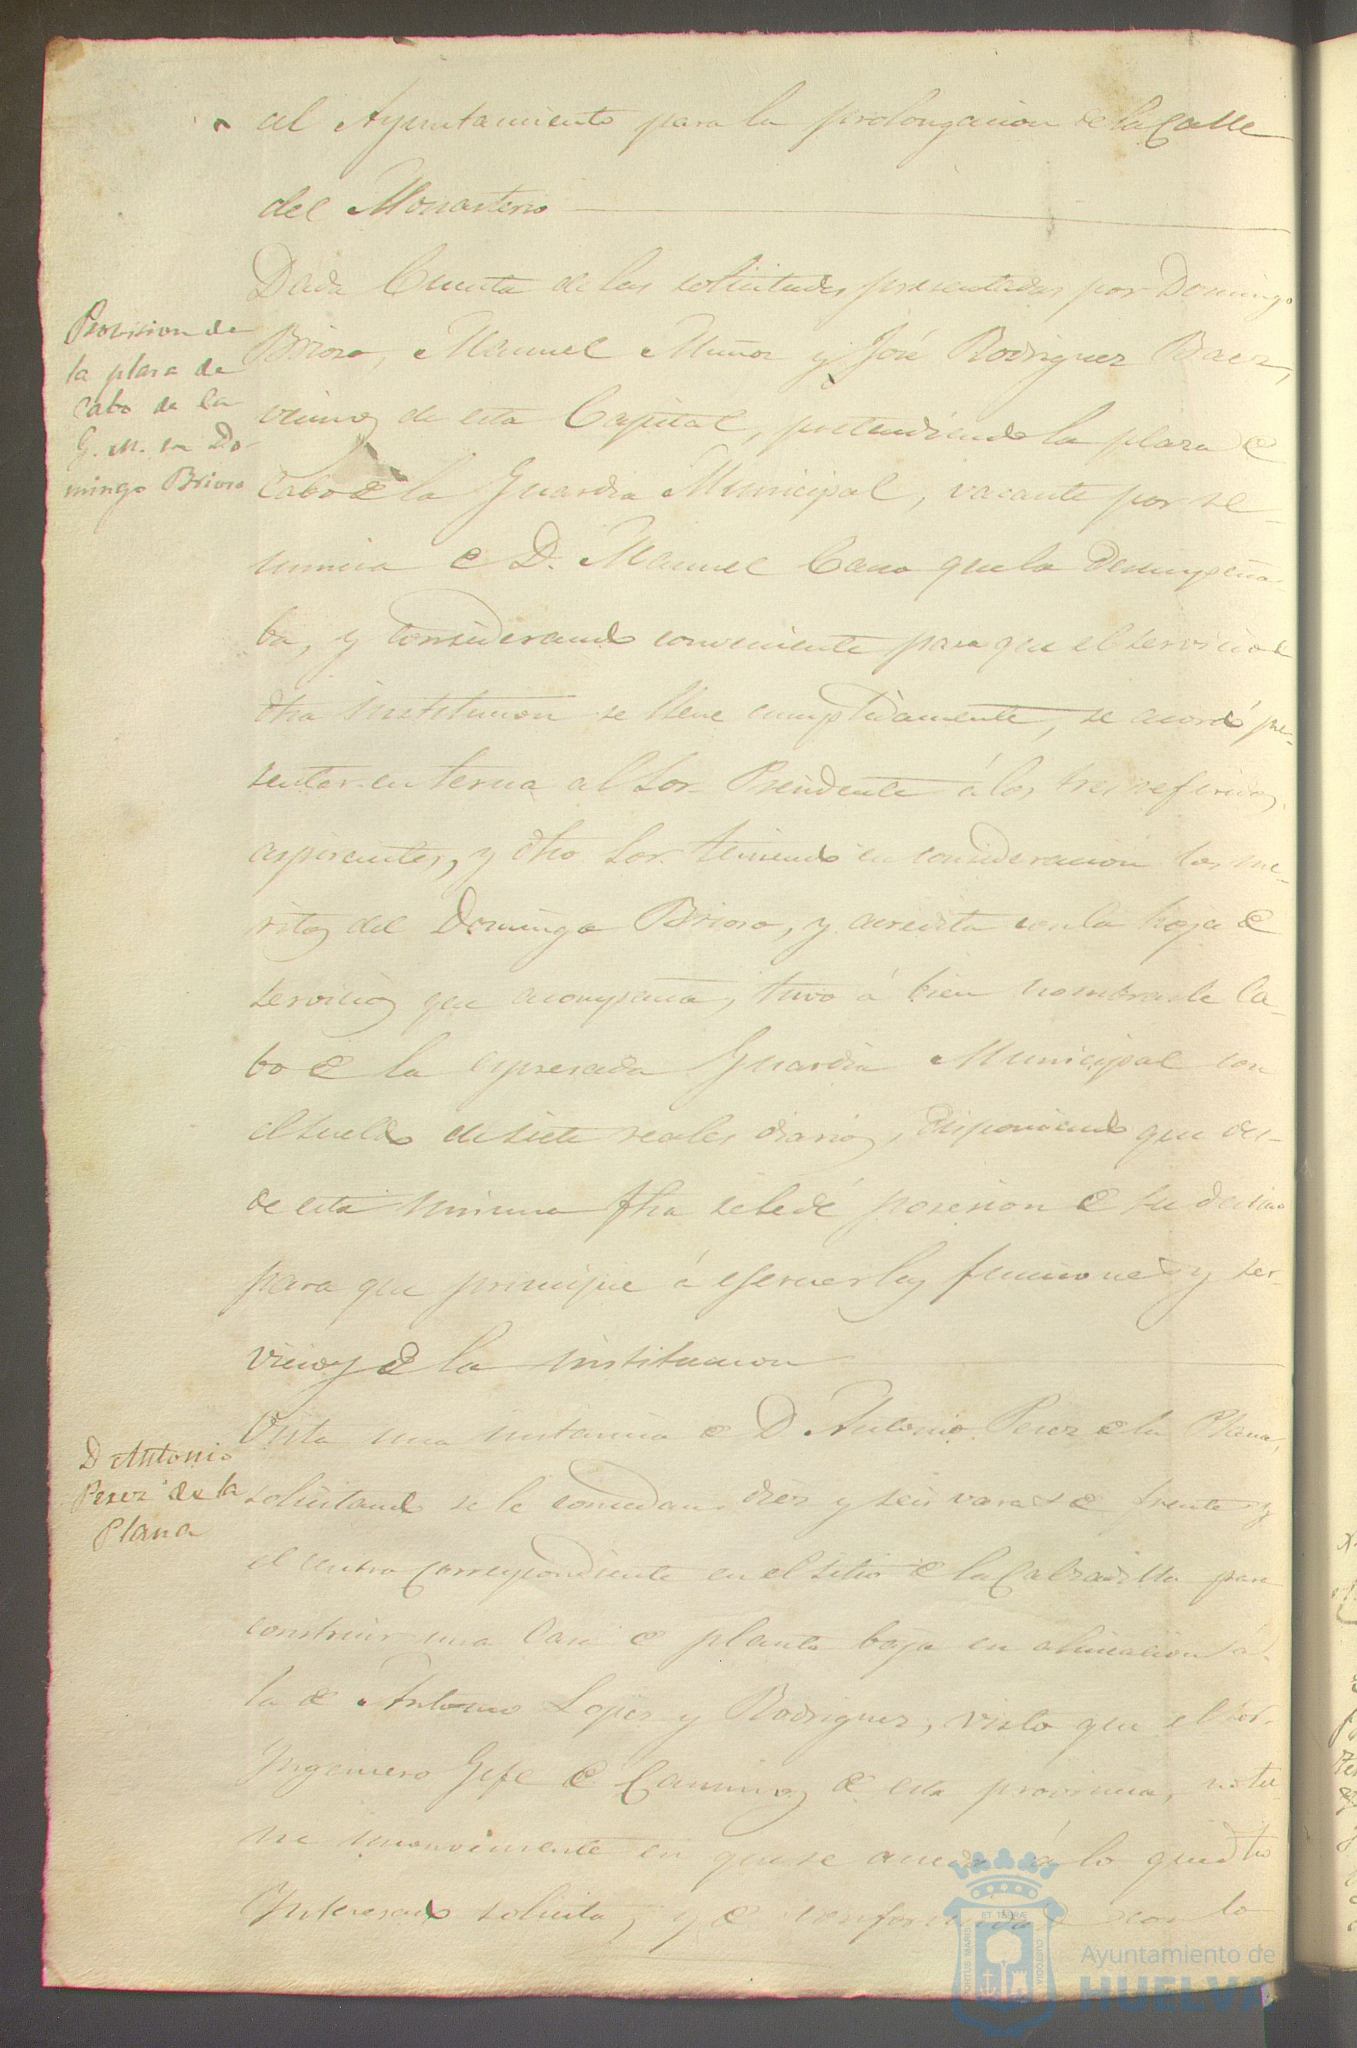 al Ayuntamiento para la prolongacion de la Calle
del Monasterio
Provision de
la plasa de
Cabo de la
G. M. en Do-
mingo Brioso
Dada Cuenta de las solicitudes presentadas por Domingo
Brioso, Manuel Muñoz y José Rodriguez Baez,
vecinos de esta Capital, pretendiendo la plaza de
Cabo de la Guardia Municipal, vacante por re-
nuncia de D. Manuel Cano que la desempeña-
ba, y considerando conveniente para que el servicio de
dha institucion se llene cumplidamente, se acordó pre-
sentar en terna al Sor. Presidente á los tres referidos
aspirantes, y dho Sor. teniendo en consideracion los me-
ritos del Domingo Brioso, y acredita con la hoja de
servicios que acompaña, tuvo á bien nombrarle Ca-
bo de la espresada Guardia Municipal con
el sueldo de siete reales diarios, disponiendo que des-
de esta misma fha se le dé posesion de su destino
para que principie á ejercer las funciones y ser-
vicios de la institucion
D Antonio
Perez de la
Plana
Vista una instancia de D Antonio Perez de la Plana,
solicitando se le concedan diez y seis varas de frente y
el centro correspondiente en el sitio de la Calzadilla para
construir una Casa de planta baja en alineacion á
la de Antonio Lopez y Rodriguez, visto que el Sor.
Ingeniero Gefe de Caminos de esta provincia, no tie-
ne inconveniente en que se acceda á lo que dho
Interesado solicita, y de conformidad con lo
PORTUS MARIS ET TERRÆ CUSTODIA
Ayuntamiento de
HUELVA